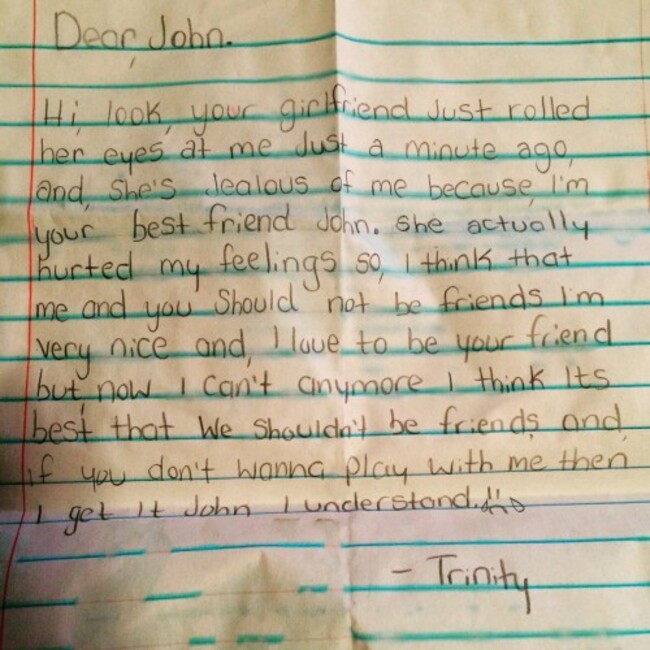 Dear, John.
Hi, look, your girlfriend Just rolled
her eyes at me Just a minute ago,
and, she's Jealous of me because, I'm
your best friend John. she actually
hurted my feelings so, I think that
me and you should not be friends I'm
very nice and, I love to be your friend
but, now I can't anymore I think Its
best that We shouldn't be friends and,
if you don't wanna play with me then
I get It John I understand.
- Trinity